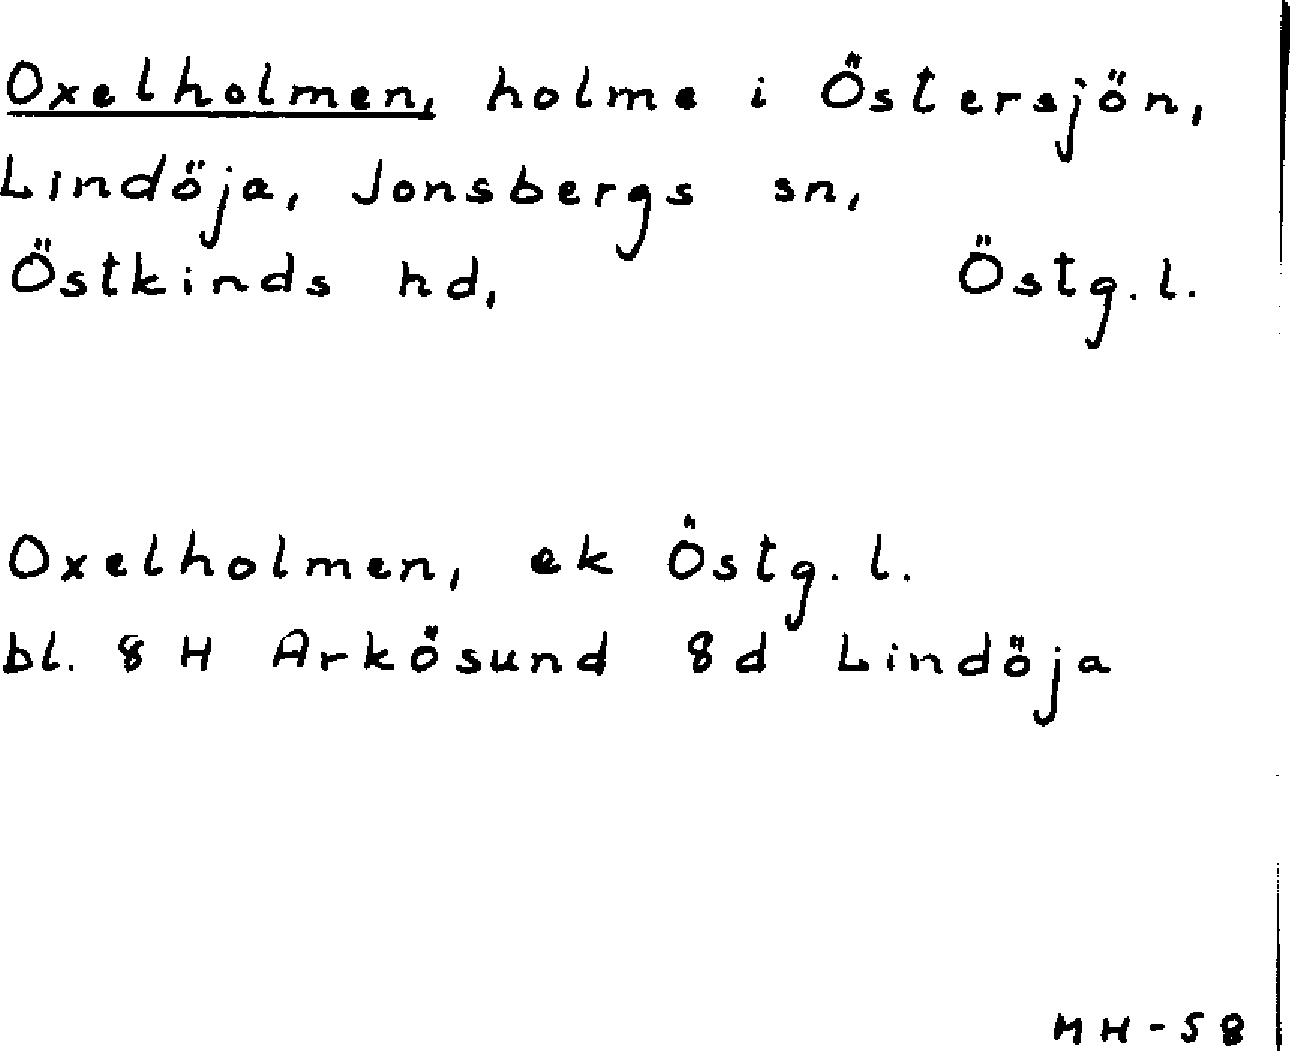 Oxelholmen, holme i Östersjön,
Lindöja, Jonsbergs sn,
Östkinds hd, Östg. l.
Oxelholmen, ek Östg. l.
bl. 8 H Arkösund 8d Lindöja
MH-58